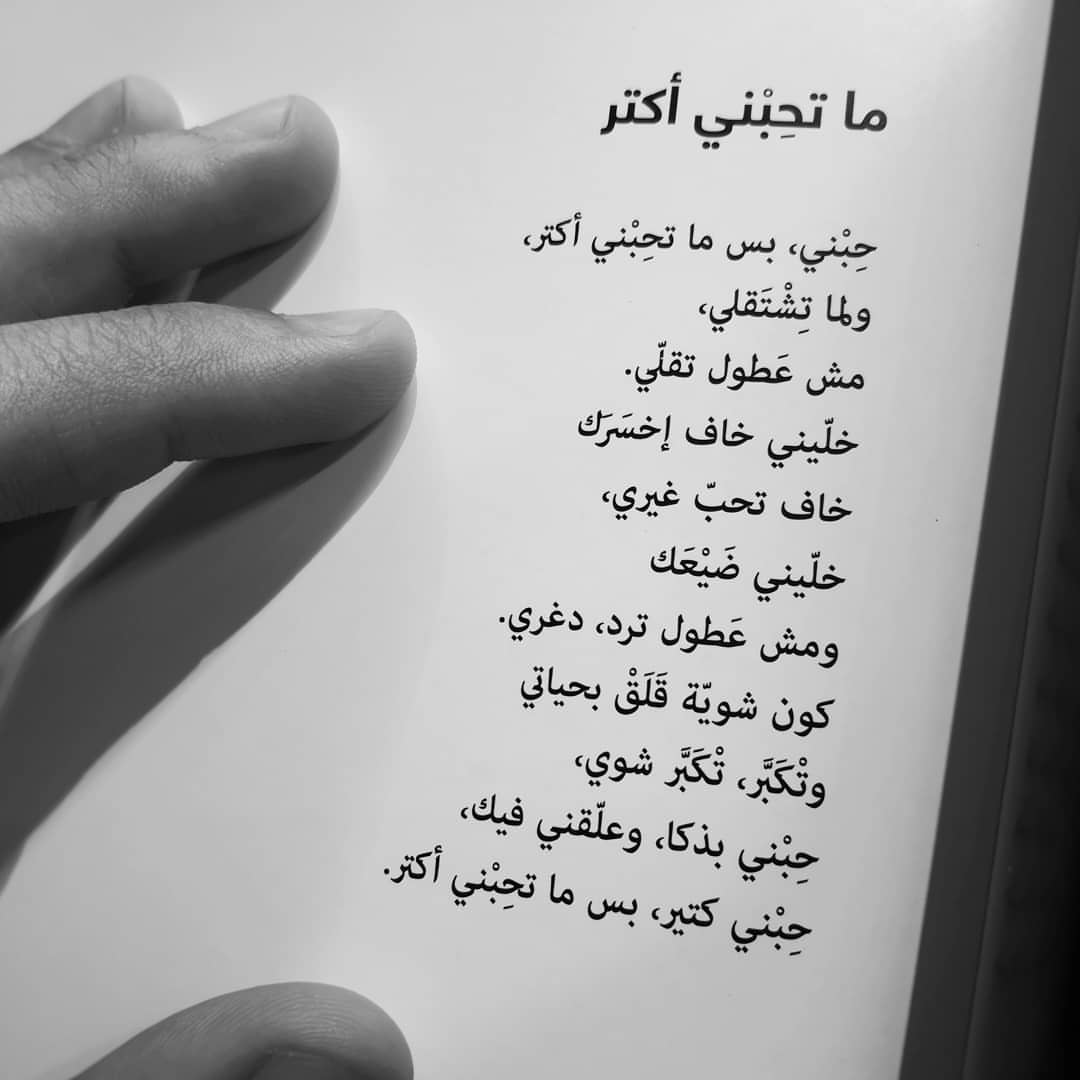 ما تحِبْني أكتر
حِبْني، بس ما تحِبْني أكتر،
ولما تِشْتَقلي،
مش عَطول تقلّي.
خلّيني خاف إخسَرَك
خاف تحبّ غيري،
خلّيني ضَيْعَك
ومش عَطول ترد، دغري.
كون شويّة قَلَقْ بحياتي
وتْكَبَّر، تْكَبَّر شوي،
حِبْني بذكا، وعلّقني فيك،
حِبْني كتير، بس ما تحِبْني أكتر.